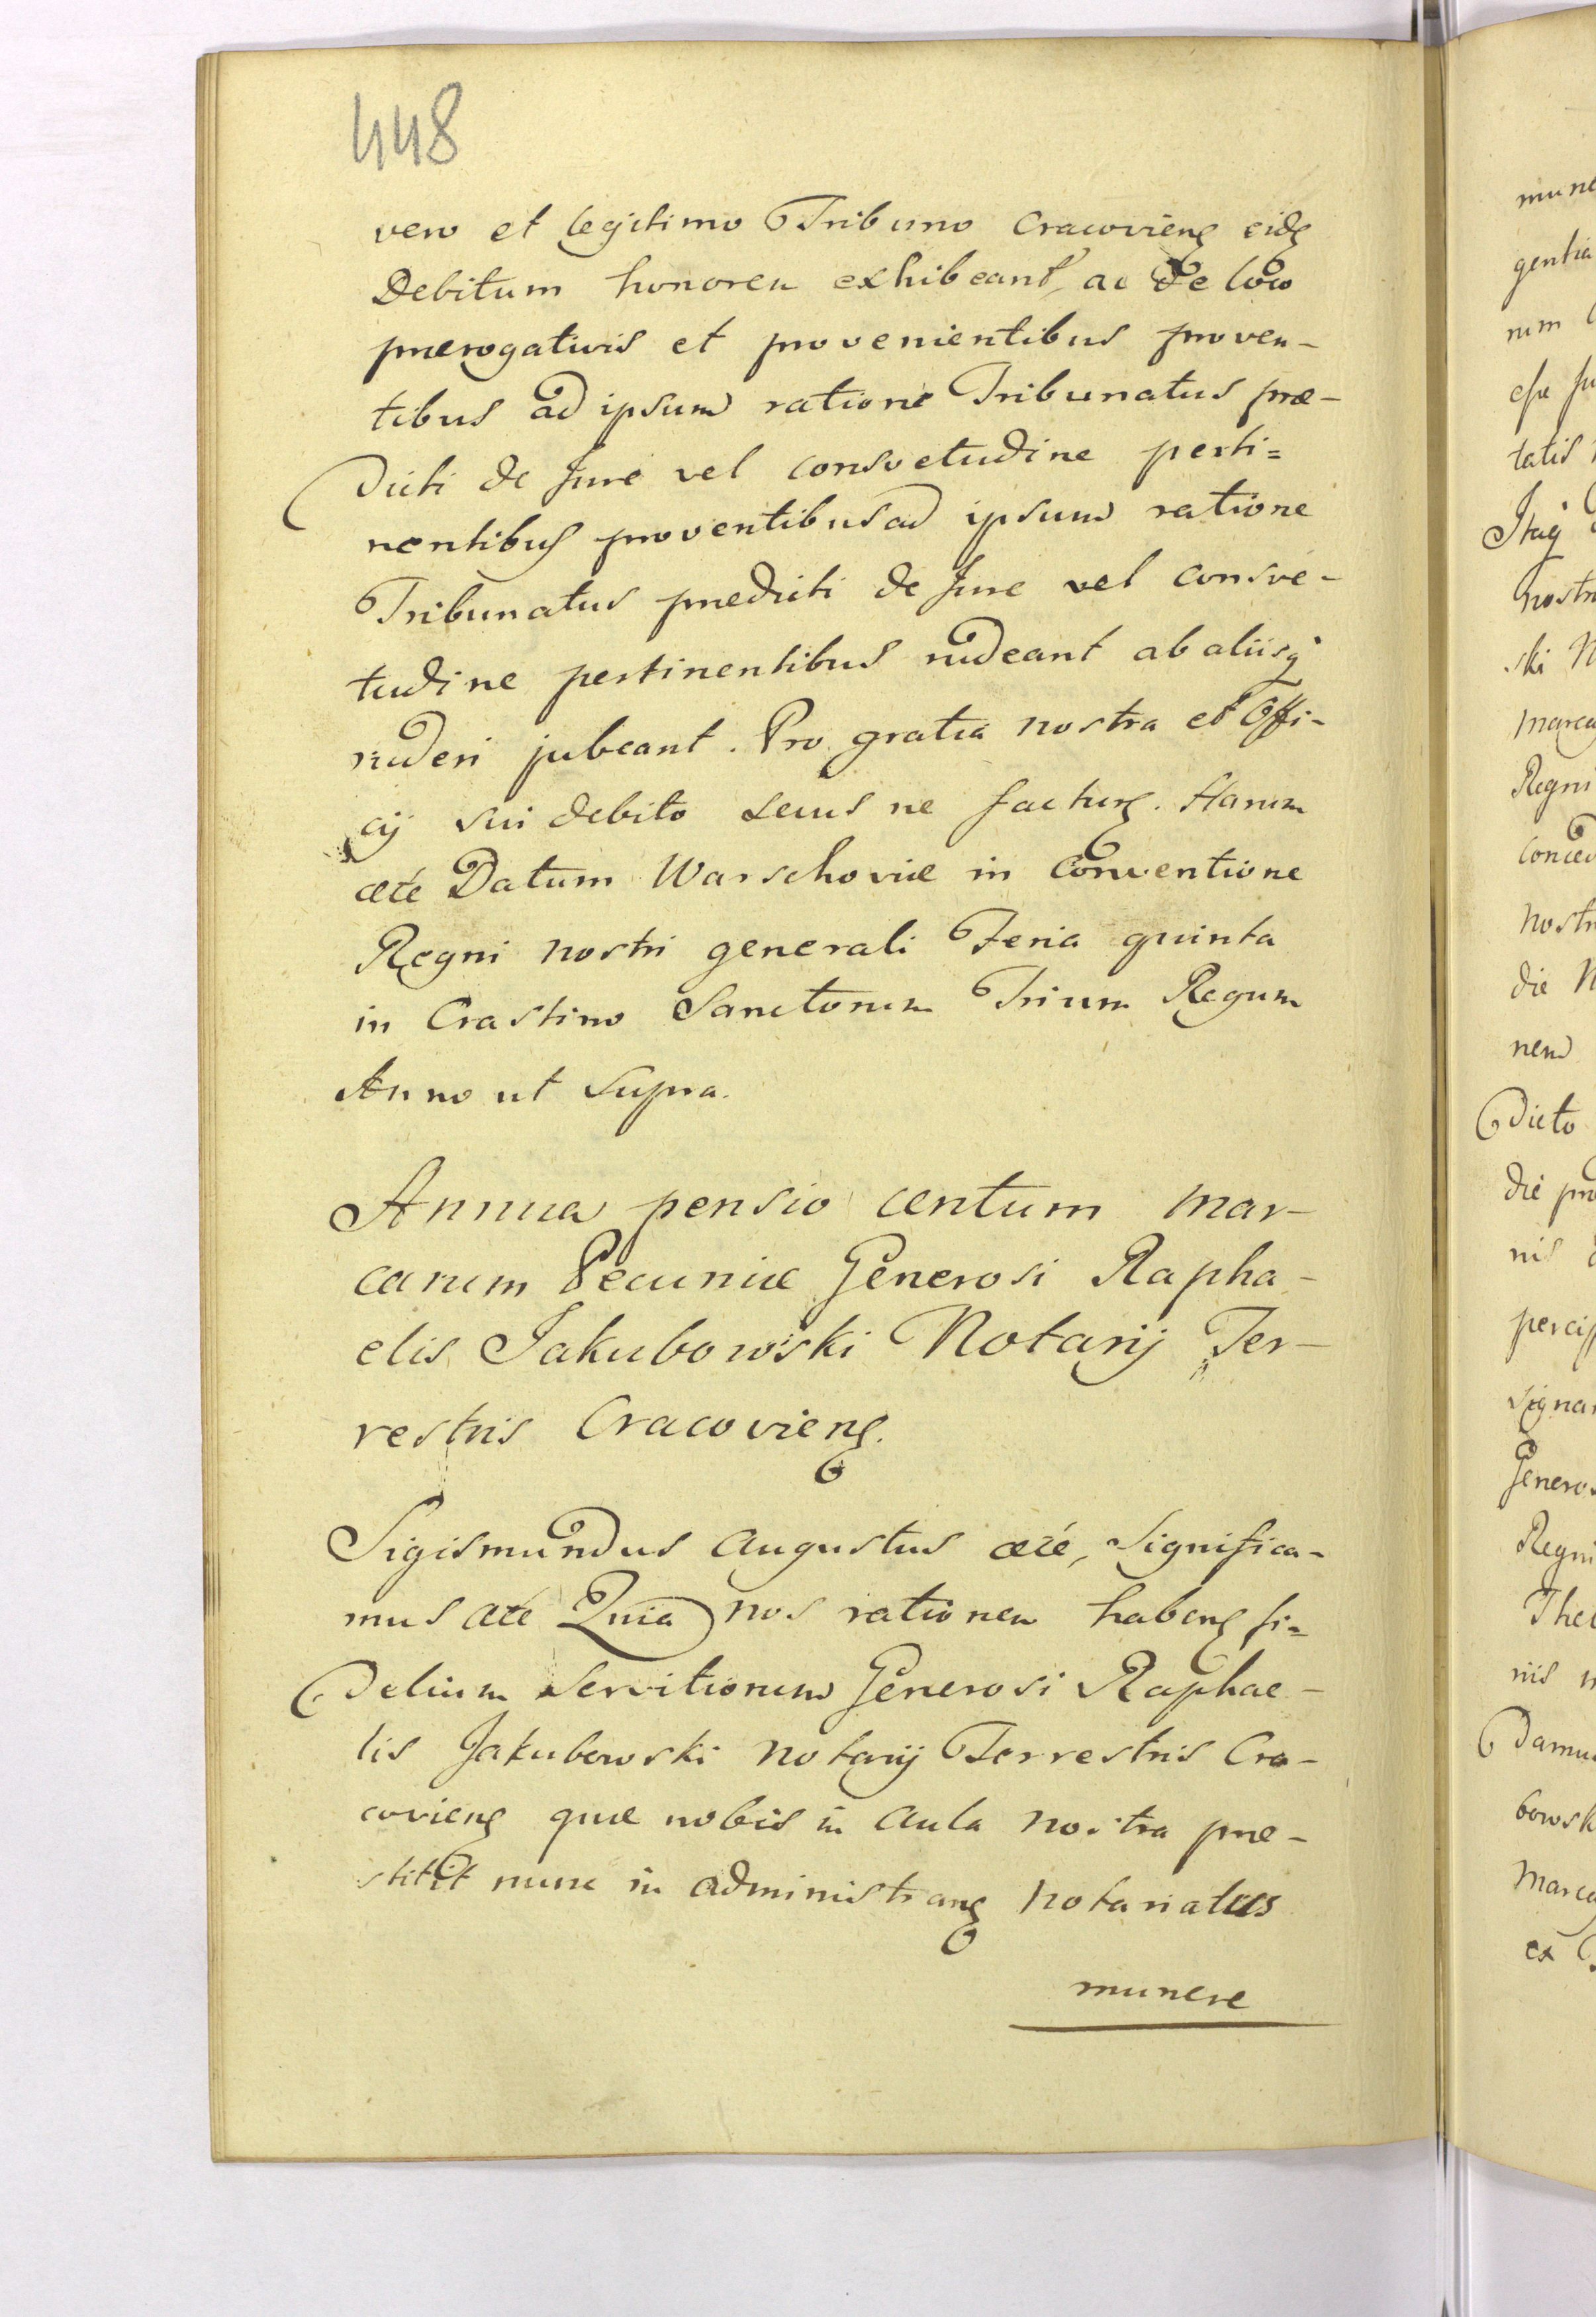 448
vero et legitimo Tribuno Cracovieng eidg
Debitum honorem exhibeant, ac de loco
prerogativis et provenientibus proven-
tibus ad ipsum ratione Tribunatus præ-
dicti de Jure vel consvetudine perti=
nentibus proventibus ad ipsum ratione
Tribunatus predicti de Jure vel consve-
tudine pertinentibus rideant ab aliisq
rideri jubeant. Pro gratia nostra et Offi-
cij sui debito secus ne facturg. Harum
ætć Datum Warschoviæ in Conventione
Regni nostri generali Feria quinta
in Crastino Sanctorum Trium Regum
Anno ut Supra.
Annua pensio centum mar-
carum Pecuniæ Generosi Rapha-
elis Jakubowski Notarij Ter-
restris Cracovieng.
Sigismundus Augustus ætć, Significa-
mus ætć Quia nos rationem habeng fi=
delium Servitiorum Generosi Raphae-
lis Jakubowski notarij Terrestris Cra-
covieng quæ nobis in Aula nostra pre-
stitit nunc in administrang notariatus
munere
mune
gentia
rum
esse
tatis
Itaq
nostr
ski N
marca
Regni
nostr
die N
nem
Dicto
die
nis
Signa
Genero
Regni
nis
Damu
bowsk
marca
ex